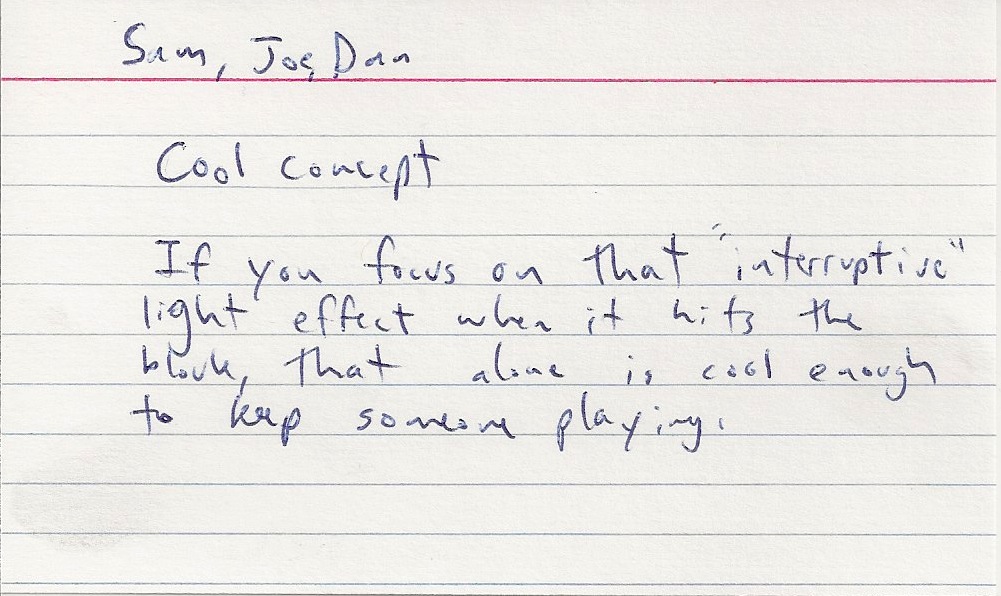 Sam, Joe, Dan
Cool concept
If you focus on that "interruptive"
light effect when it hits the
block, that alone is cool enough
to keep someone playing.